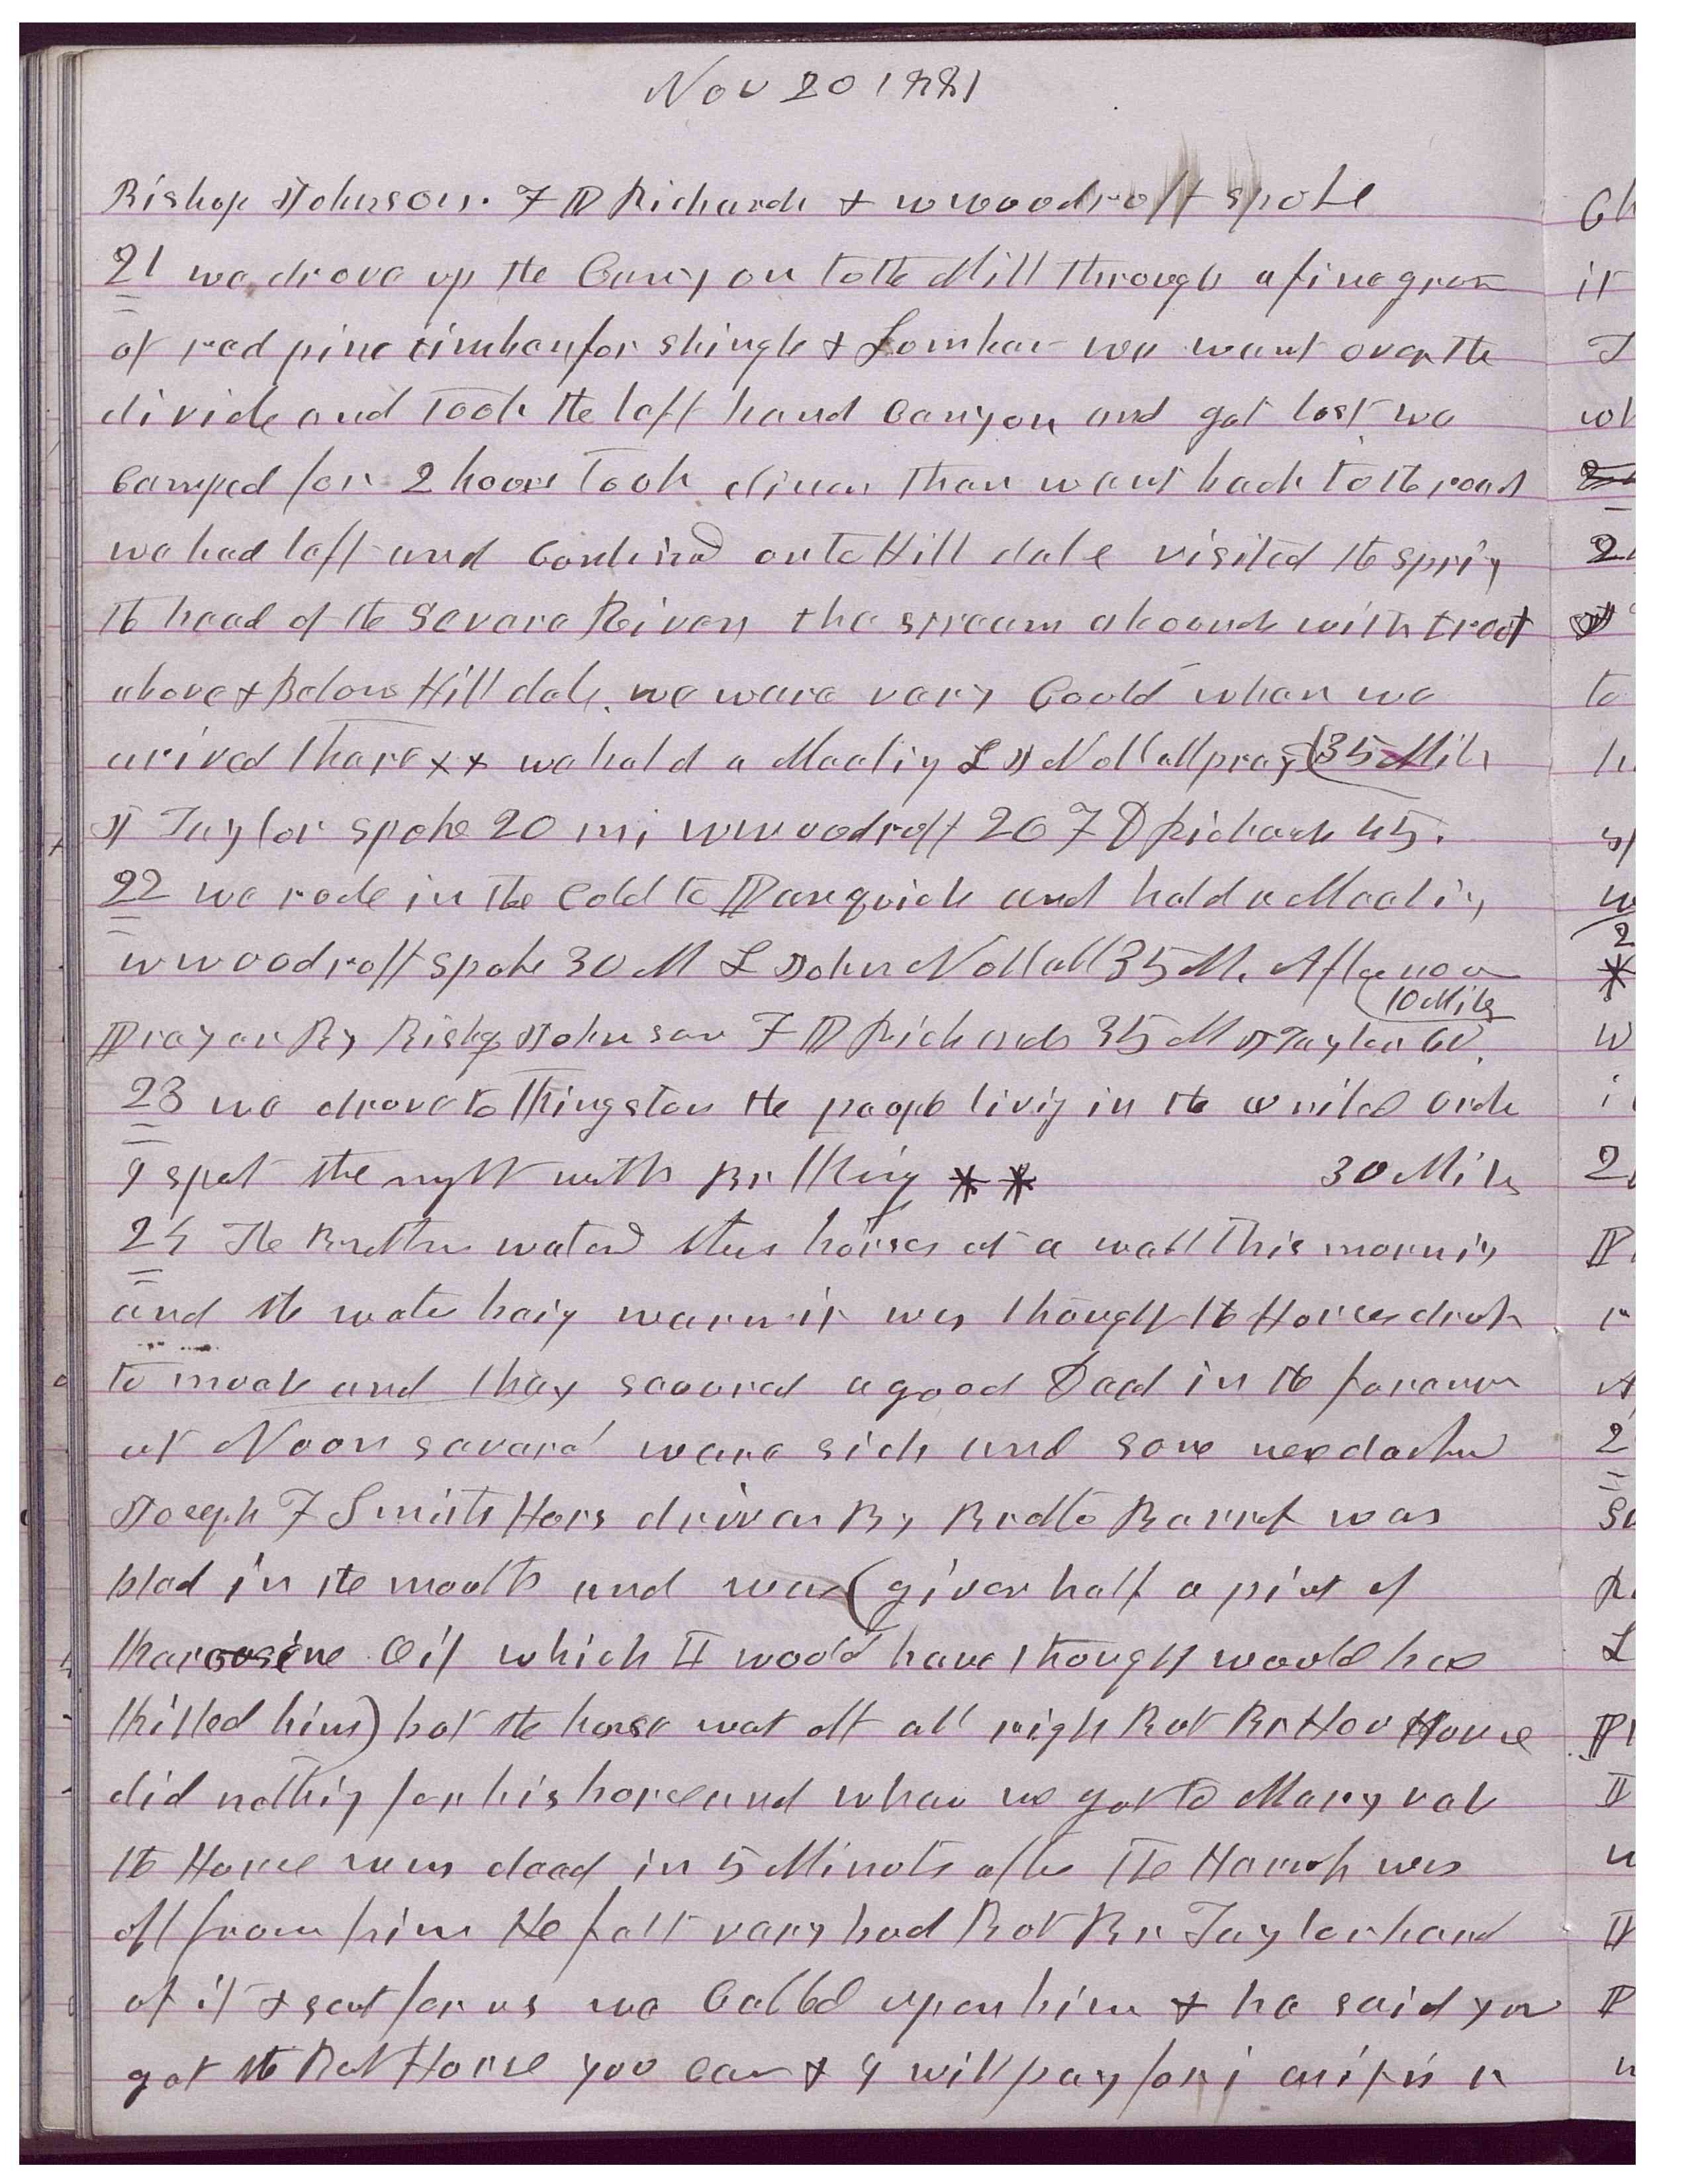 Nov 20 1881
Bishop Johnson. F D Richards & W Woodruff spoke
21 we drove up the Canyon to the Mill through a fine grove
of red pine timber for shingle & Lomber we went over the
divide and took the left hand Canyon and got lost we
Camped for 2 hours took diner then went back to the road
we had left and Contind on to Hilldale visited the spring
the head of the Severe River the stream abounds with trout
above & Below Hilldale. we were very Could when we
arived there xx we held a Meeting L J Nuttall pray 35 Mils
J Taylor spoke 20 mi W Woodruff 20 F D Richards 45.
22 we rode in the Cold to Panguich and held a Meeting
W Woodruff spoke 30 M L John Nuttall 35 M. Afternoon
10 Miles
Prayer By Bishop Johnson F D Richards 35 M J Taylor 60.
23 we drove to Kingston the people living in the united order
I spet the night with Br King ** 30 Miles
24 The Brethren waterd their horses at a well this morning
and the water being warm it was thought the Horses drok
to much and they scourd a good Deal in the forenoon
at Noon several were sick and some need doctrd
Joseph F Smiths Hors driven By Brother Barret was
bled in the mouth and was (given half a pint of
Karosine Oil which I would have thought would have
killed him) but the horse went off all right But Br House
did nothing for his horse and when we got to Mary vale
the Horse was dead in 5 Minuts after the Harness was
off from him He felt very bad But Br Taylor heard
of it & sent for us we Called upon him & he said you
get the Best Horse you can & I will pay for